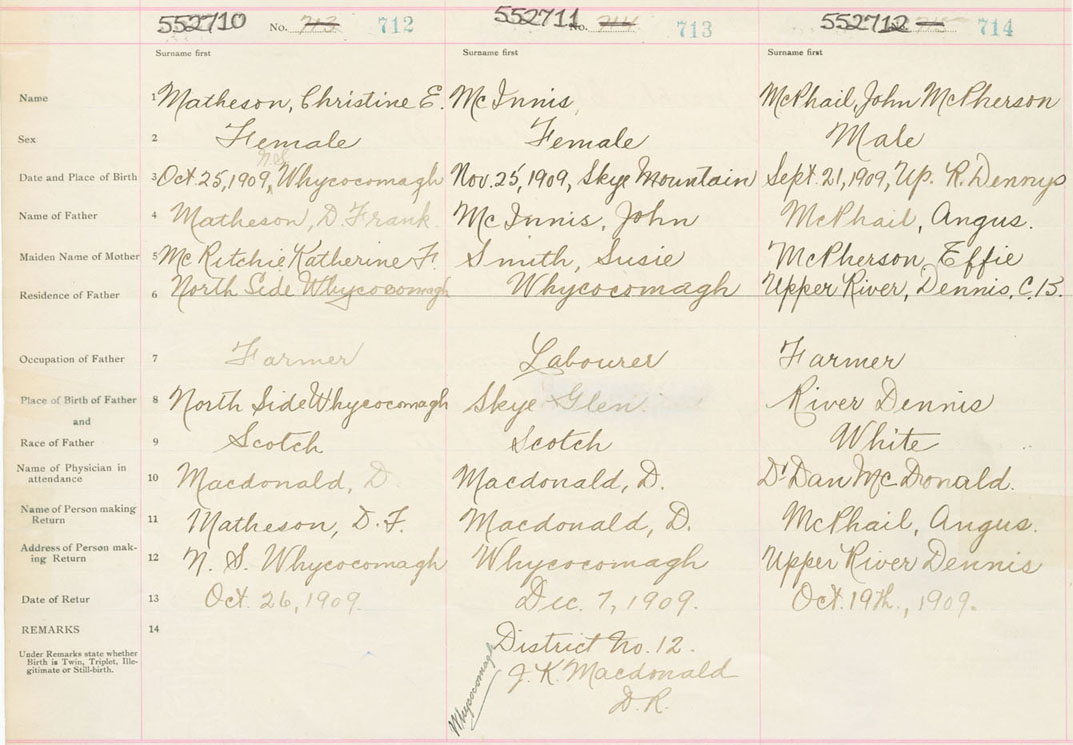 552710 No. 713 712 552711 No. 714 713 552712 715 714
Surname first Surname first Surname first
Name 1 Matheson, Christine E. McInnis McPhail, John McPherson
Sex 2 Female Female Male
N.S.
Date and Place of Birth 3 Oct. 25, 1909, Whycocomagh Nov. 25, 1909, Skye Mountain Sept. 21, 1909, Up. R. Dennys
Name of Father 4 Matheson, D. Frank. McInnis, John McPhail, Angus.
Maiden Name of Mother 5 McRitchie Katherine F. Smith, Susie McPherson, Effie
Residence of Father 6 North Side Whycocomagh Whycocomagh Upper River, Dennis, C.B.
Occupation of Father 7 Farmer Labourer Farmer
Place of Birth of Father 8 North Side Whycocomagh Skye Glen. River Dennis
and
Race of Father 9 Scotch Scotch White
Name of Physician in
attendance 10 Macdonald, D. Macdonald, D. Dr Dan McDonald.
Name of Person making
Return 11 Matheson, D. F. Macdonald, D. McPhail, Angus.
Address of Person mak-
ing Return 12 N. S. Whycocomagh Whycocomagh Upper River Dennis
Date of Retur 13 Oct. 26, 1909. Dec. 7, 1909. Oct. 19th., 1909.
REMARKS 14
Under Remarks state whether
Birth is Twin, Triplet, Ille-
gitimate or Still-birth.
District No. 12.
J. K. Macdonald
D. R.
Whycocomagh